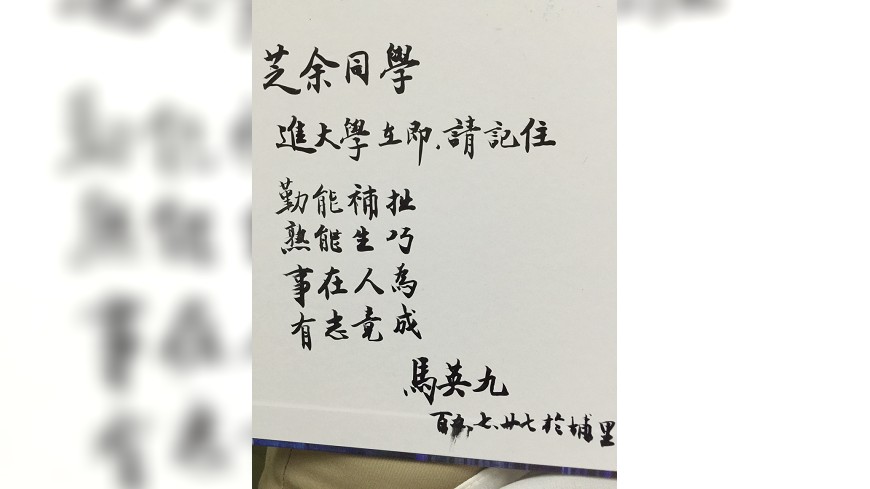 芝余同學
進大學在即,請記住
勤能補扯
熟能生巧
事在人為
有志竟成
馬英九
百 七、廿七於埔里